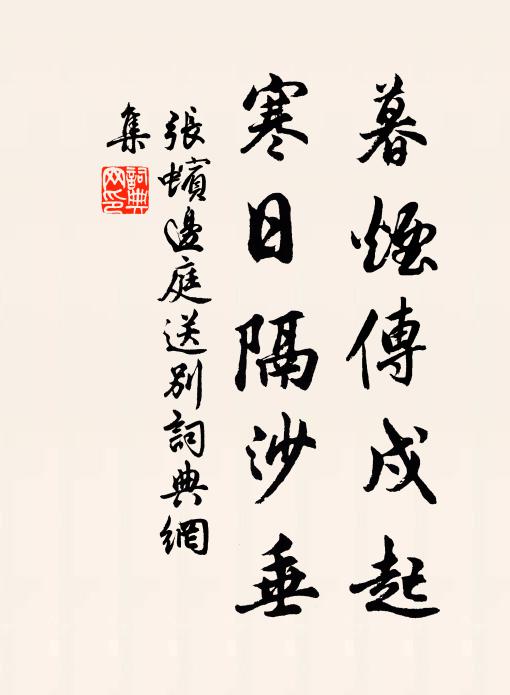 暮煙傳戍起
寒日隔沙垂
張蠙邊庭送別詞典網
集
詞典
网印